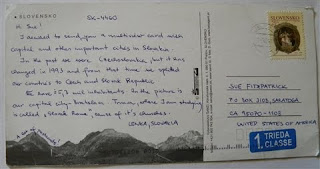 SLOVENSKO
SK-4460
Hi Sue!
I wanted to send you a multicolor card with
capital and other important cities in Slovakia
In the past we were Czechoslovakia, but it has
changed in 1993 and from that time we splitted our
countries to Czech and Slovak Republic
We have 5,3 mil. inhabitants. On the picture is
our capital city Bratislava. Trnava, where I am studying
is called Slovak Rome, cause of it's churches.
LENKA, SLOVAKIA
SLOVENSKO
SUE FITZPATRICK
PO BOX 3105, SARATOGA
CA 95070-1105
UNITED STATES OF AMERICA
1. TRIEDA
CLASSE